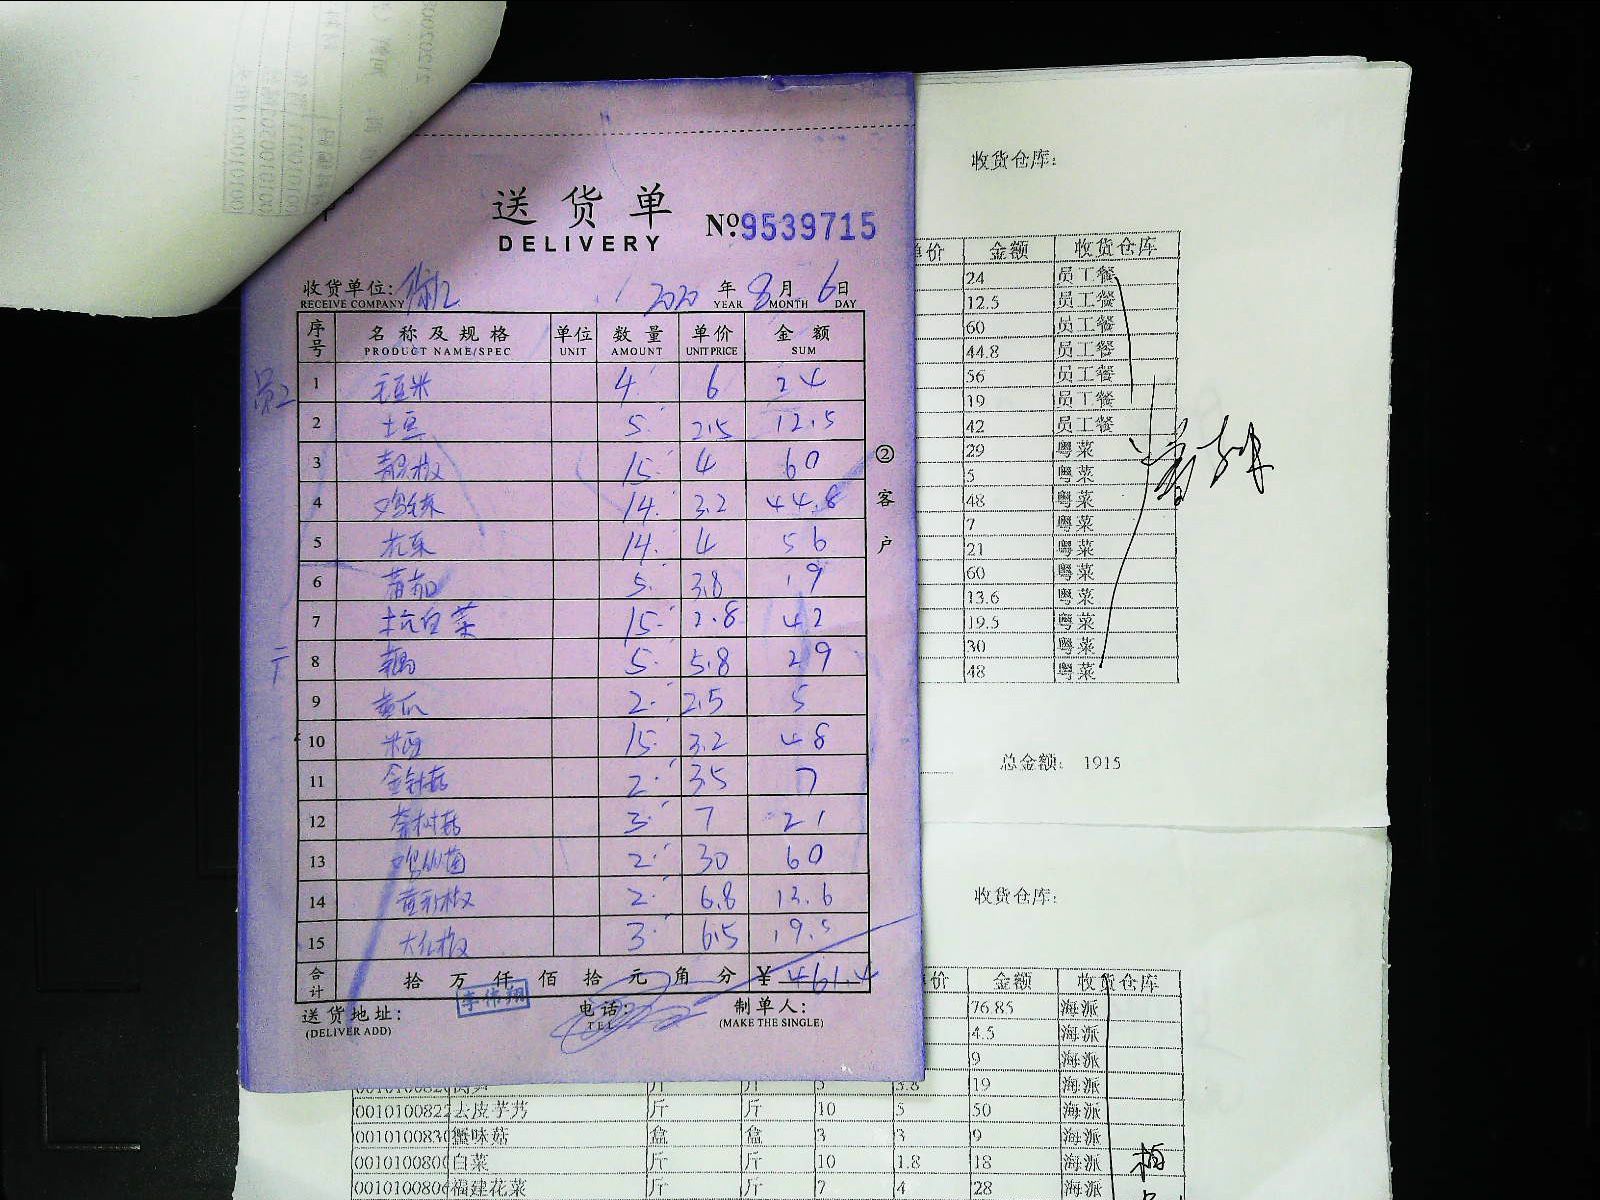 送货单
DELIVERY
№9539715
收货单位:
RECEIVE COMPANY
2020 年 8 月 6 日
YEAR MONTH DAY
序号 名称及规格 单位 数量 单价 金额
PRODUCT NAME/SPEC UNIT AMOUNT UNIT PRICE SUM
1 毛豆米 4 6 24
2 土豆 5 2.5 12.5
3 青椒 15 4 60
4 14 3.2 44.8
5 14 4 56
6 蕃茄 5 3.8 19
7 杭白菜 15 2.8 42
8 5 5.8 29
9 黄瓜 2 2.5 5
10 米西 15 3.2 48
11 金针菇 2 3.5 7
12 茶树菇 3 7 21
13 2 30 60
14 黄彩椒 2 6.8 13.6
15 大红椒 3 6.5 19.5
合计 拾万仟佰拾元角分 ¥461.4
李伟翔
送货地址: 电话: 制单人:
(DELIVER ADD) TEL (MAKE THE SINGLE)
②客户
员工
收货仓库:
单价 金额 收货仓库
24 员工餐
12.5 员工餐
60 员工餐
44.8 员工餐
56 员工餐
19 员工餐
42 员工餐
29 粤菜
5 粤菜
48 粤菜
7 粤菜
21 粤菜
60 粤菜
13.6 粤菜
19.5 粤菜
30 粤菜
48 粤菜
总金额: 1915
收货仓库:
价 金额 收货仓库
76.85 海派
4.5 海派
9 海派
3.8 19 海派
0010100822 去皮芋艿 斤 斤 10 5 50 海派
001010083 蟹味菇 盒 盒 3 3 9 海派
001010080 白菜 斤 斤 10 1.8 18 海派
001010080 福建花菜 斤 斤 7 4 28 海派